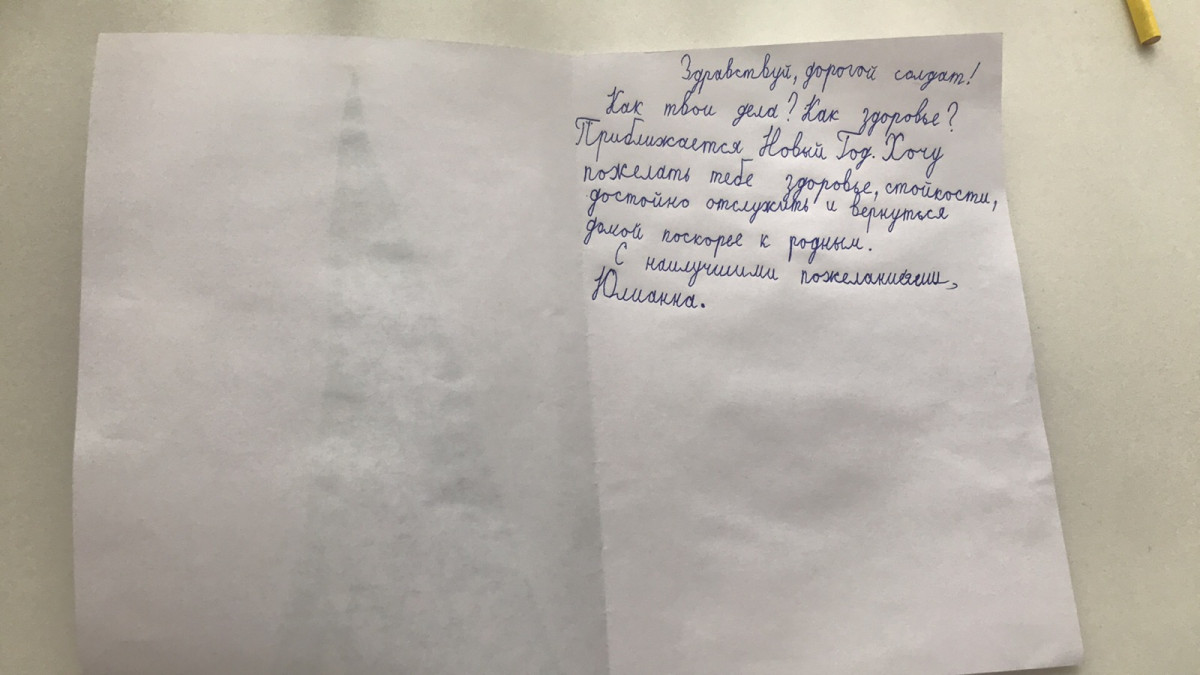 Здравствуй, дорогой солдат!
Как твои дела? Как здоровье?
Приближается Новый Год. Хочу
пожелать тебе здоровье, стойкости,
достойно отслужить и вернуться
домой поскорее к родным.
С наилучшими пожеланиями,
Юлианна.